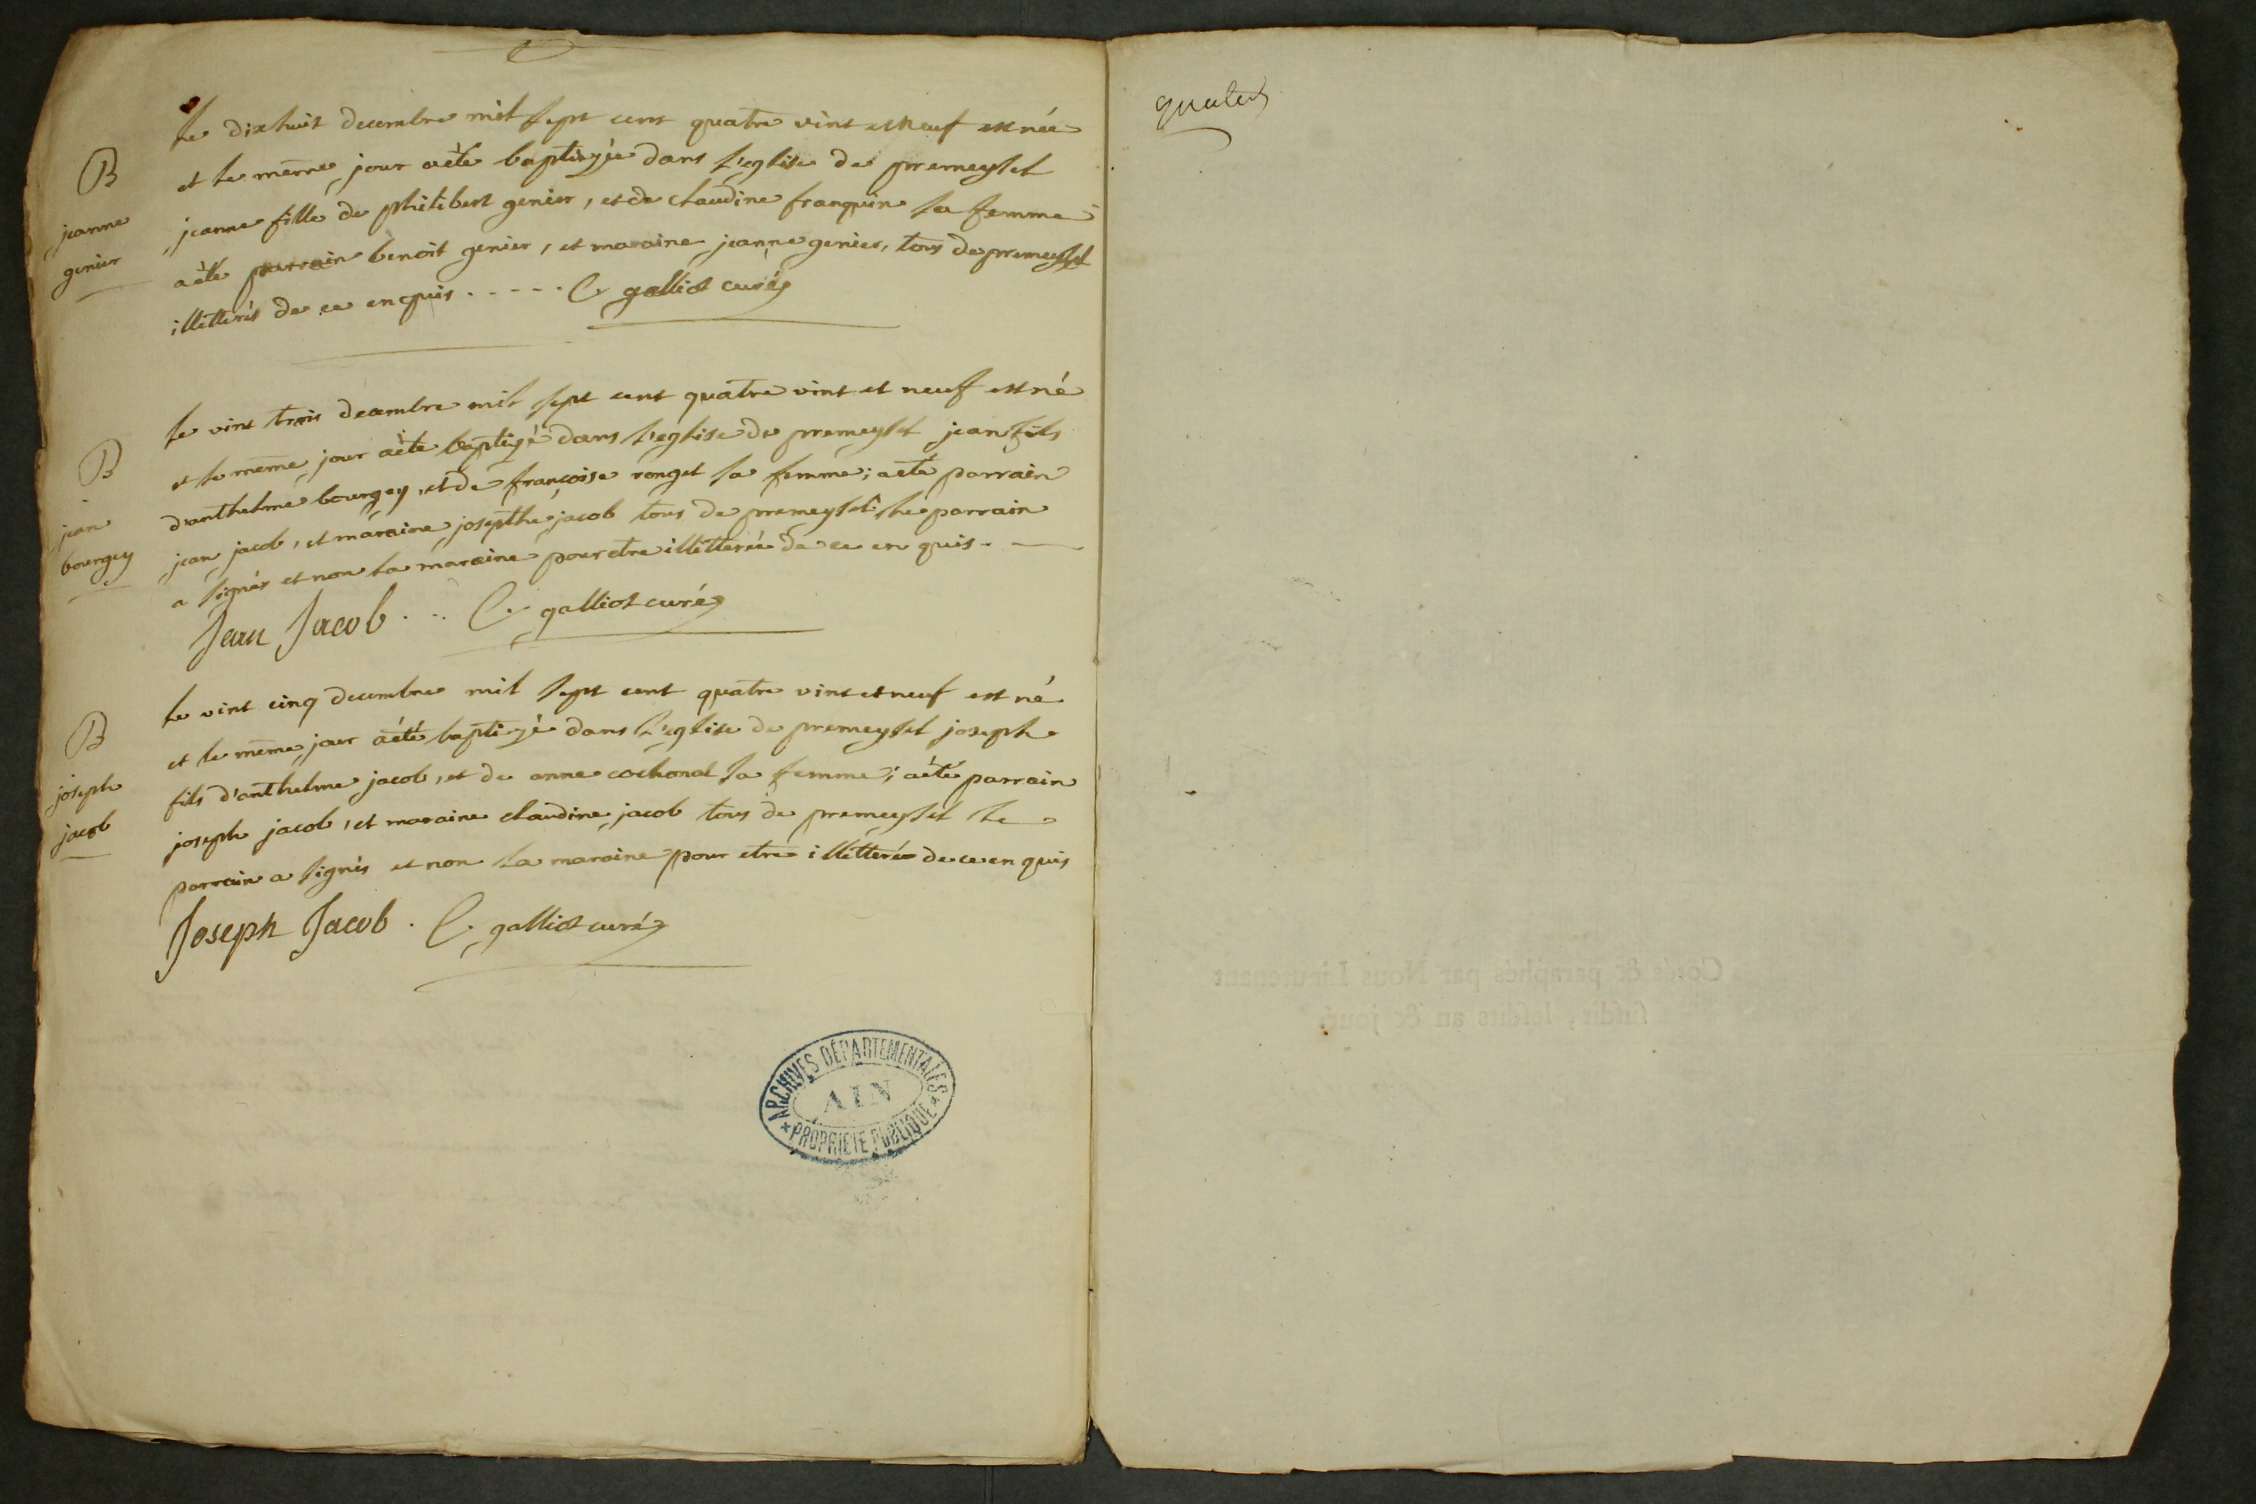 Le dix huit decembre mil sept cent quatre vint et neuf est née
B
et le même jour a été baptizée dans l'eglise de premeyset
jeanne
jeanne fille de philibert genier, et de claudine franquin sa femme
genier
a été parrain benoit genier, et maraine jeanne genier, tous de premeyset
illetterés de ce enquis . . . . . C galliot curé
le vint trois decembre mil sept cent quatre vint et neuf est né
B
et le même jour a été baptizé dans l'eglise de premeyset jean fils
jean
d'anthelme bourgey, et de françoise ronget sa femme; a été parrain
bourgey
jean jacob, et maraine josepthe jacob tous de premeyset: le parrain
a signés et non la maraine pour etre illetterée de ce en quis.
Jean Jacob . . . C. galliot curé
le vint cinq decembre mil sept cent quatre vint et neuf est né
B
et le même jour a été baptizé dans l'eglise de premeyset joseph
joseph
fils d'anthelme jacob, et de anne cochonat sa femme; a été parrain
jacob
joseph jacob, et maraine claudine jacob tous de premeyset le
parrain a signés et non la maraine pour etre illetterée de ce en quis
Joseph Jacob . C. galliot curé
ARCHIVES DÉPARTEMENTALES
AIN
* PROPRIETE PUBLIQUE *
Cotés & paraphés par Nous Lieutenant
susdit, lesdits an & jour.